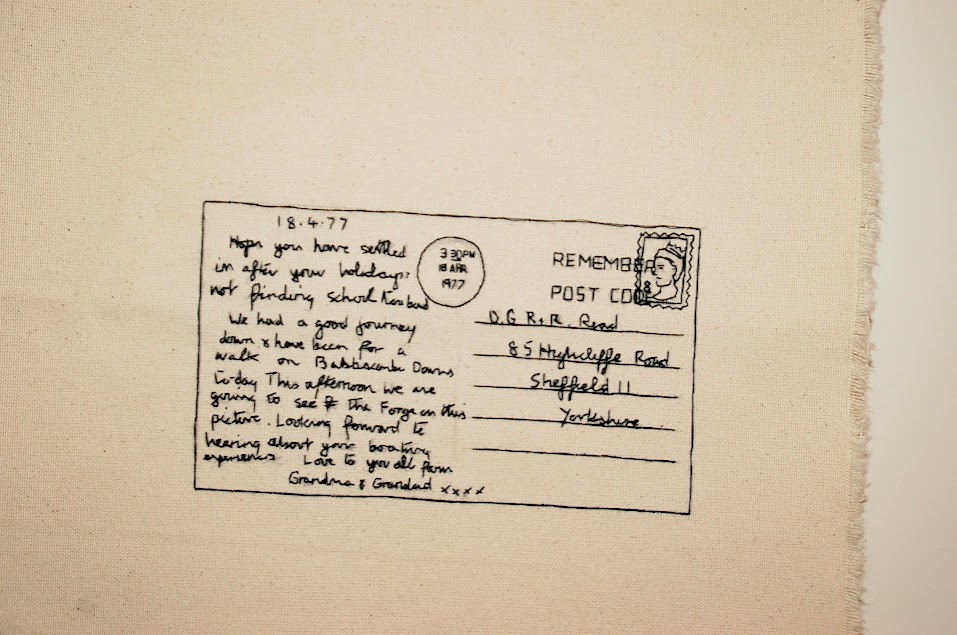 18.4.77
Hope you have settled
in after your holidays &
not finding school too bad
We had a good journey
down & have been for a
walk on Babbscombe Downs
to-day This afternoon we are
going to see the Forge on this
picture. Looking forward to
hearing about your boating
experiences Love to you all from
Grandma & Grandad xxxx
3 30PM
18 APR
1977
REMEMBER
POST CODE
D.G R+R. Read
85 Highcliffe Road
Sheffield 11
Yorkshire.